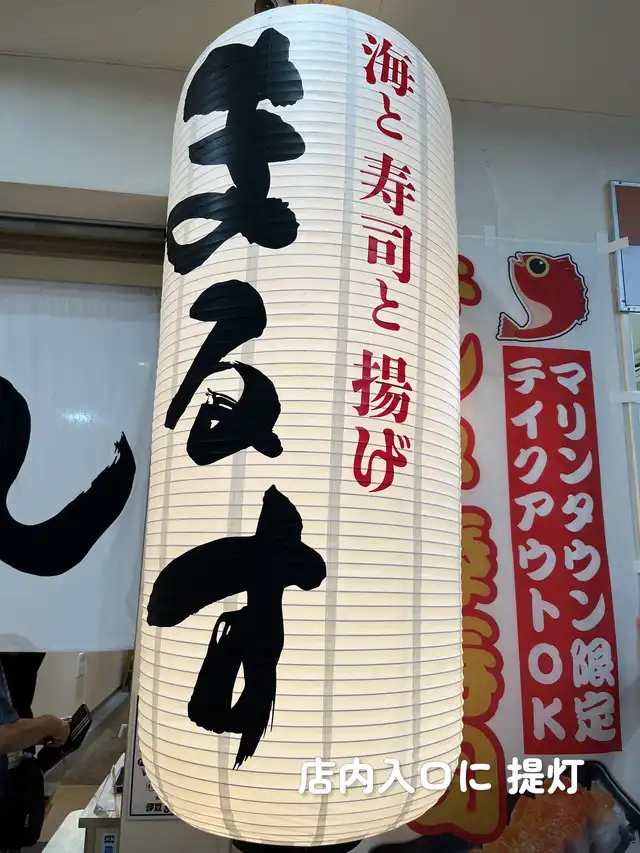 海と寿司と揚げ
まるす
マリンタウン限定
テイクアウトOK
店内入口に 提灯